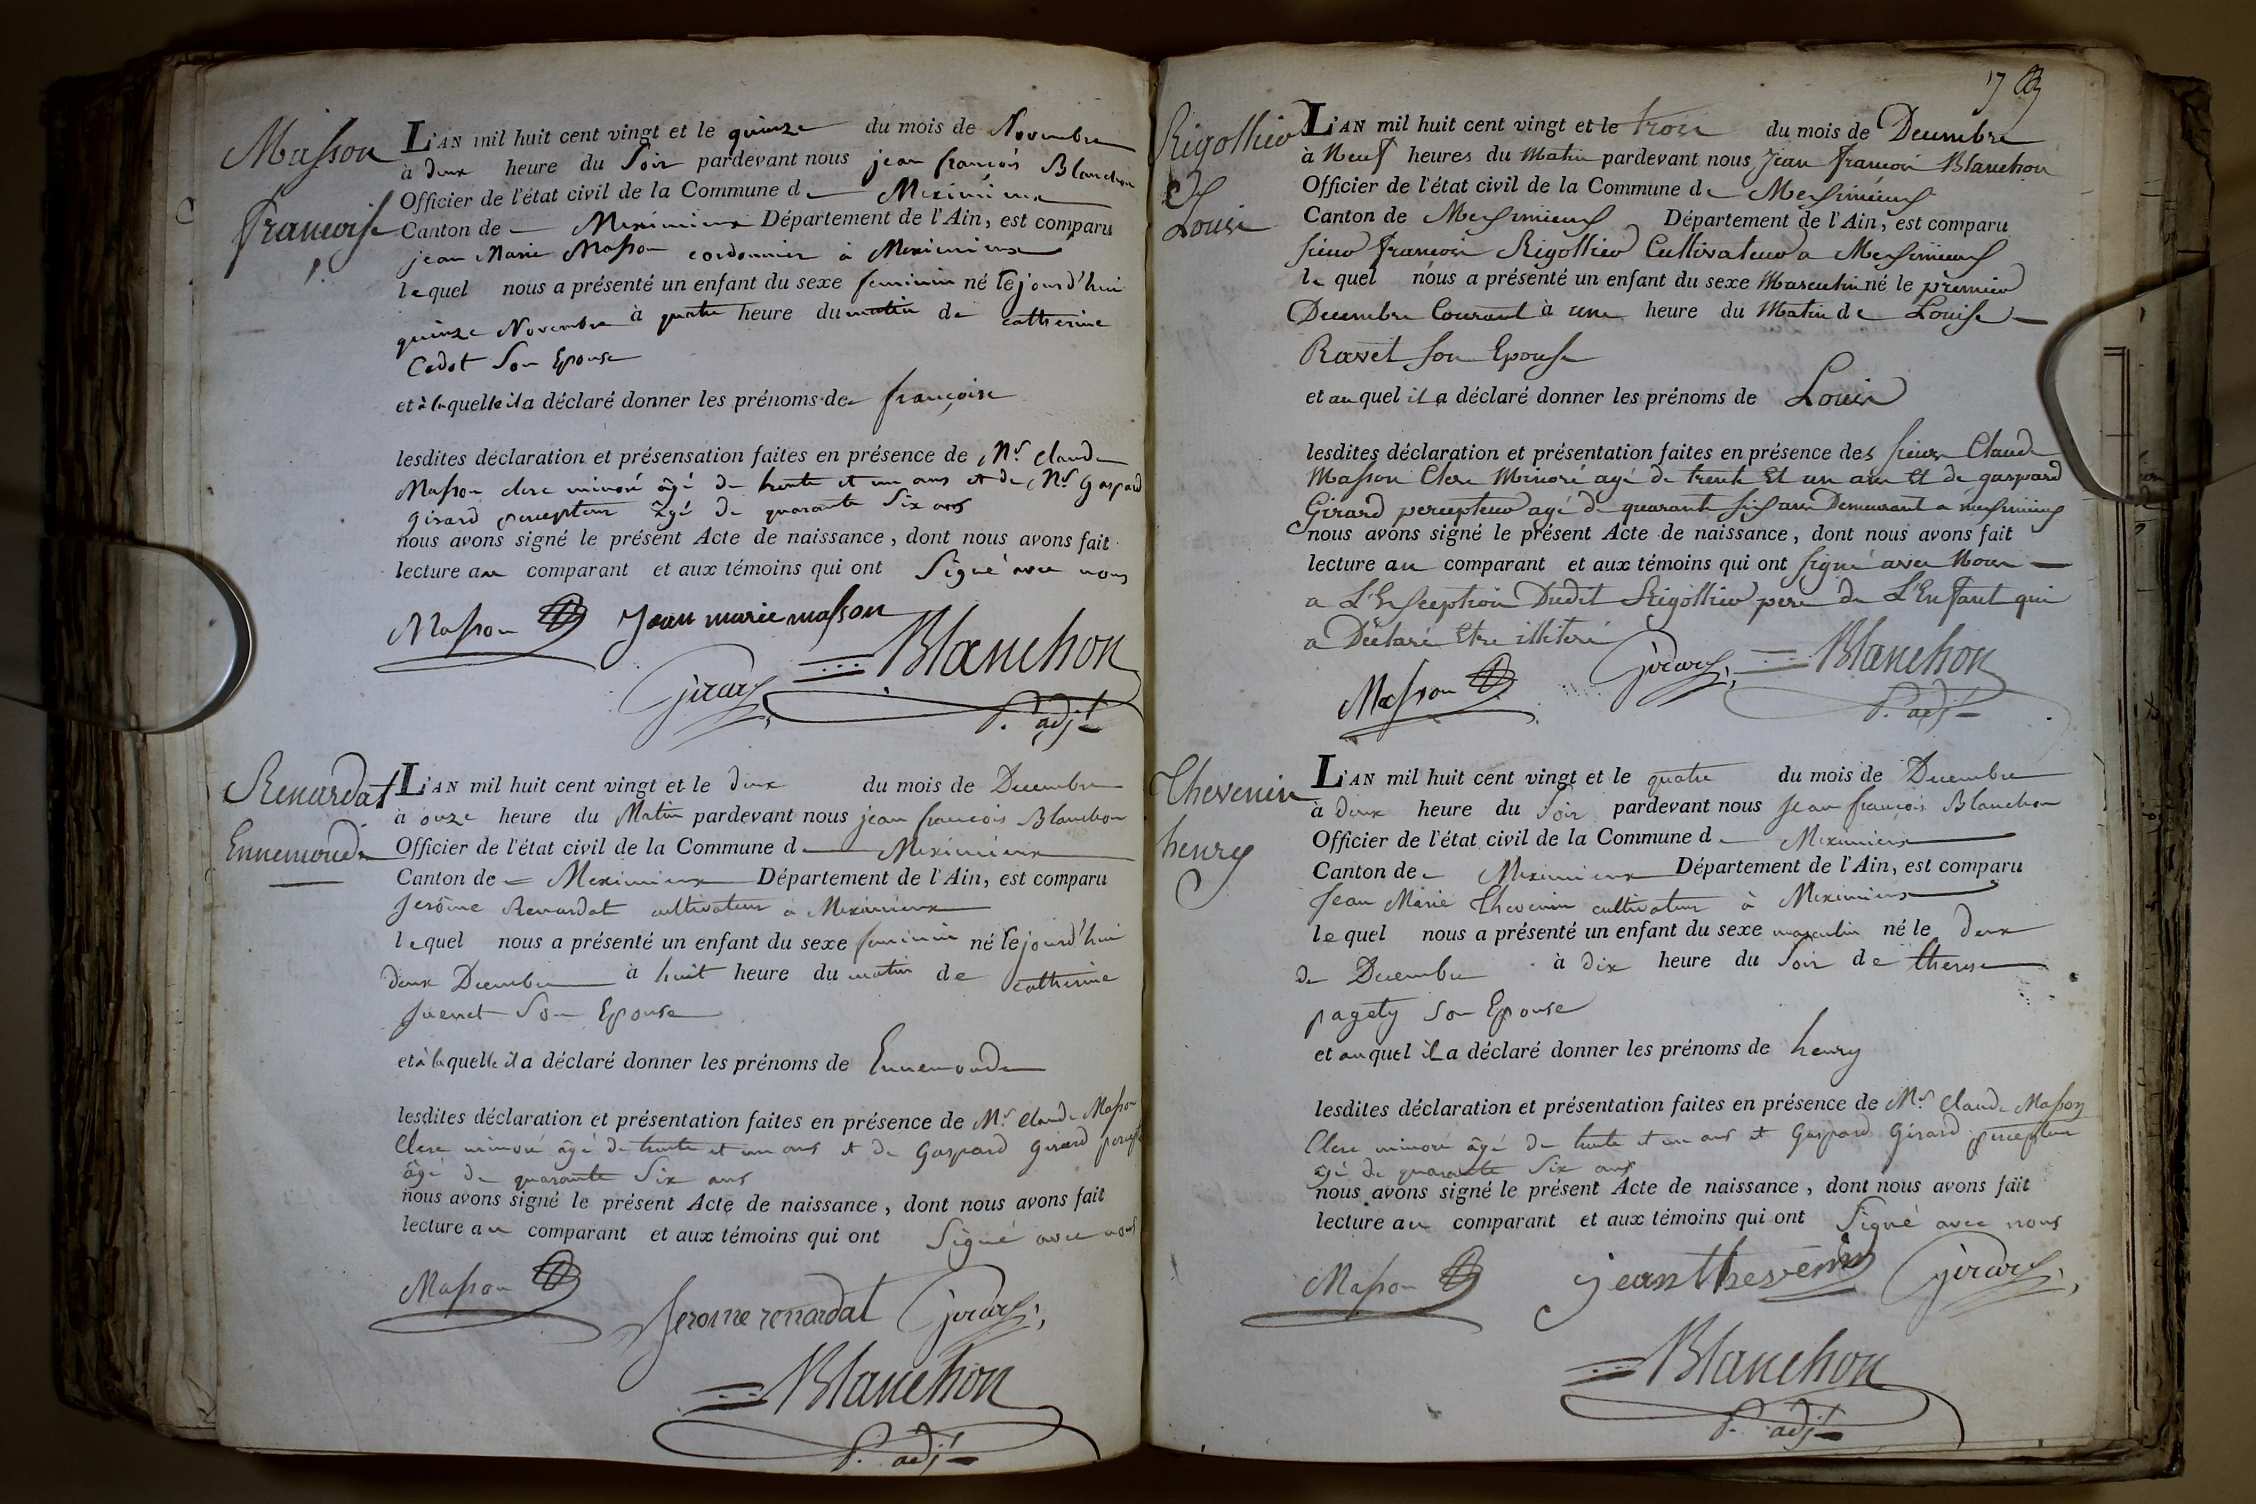 Masson
françoise
L'AN mil huit cent vingt et le quinze du mois de Novembre
à deux heure du Soir pardevant nous jean françois Blanchon
Officier de l'état civil de la Commune de Meximieux
Canton de Meximieux Département de l'Ain, est comparu
jean Marie Masson cordonnier à Meximieux
lequel nous a présenté un enfant du sexe feminin né le jourd'hui
quinze Novembre à quatre heure du matin de catherine
Cadot Son Epouse
et à laquelle il a déclaré donner les prénoms de françoise
lesdites déclaration et présensation faites en présence de Mr. Claude
Masson clerc minoré âgé de trente et un ans et de Mr. Gaspard
Girard percepteur âgé de quarante Six ans
nous avons signé le présent Acte de naissance, dont nous avons fait
lecture au comparant et aux témoins qui ont Signé avec nous
Masson Jean marie masson
Blanchon
Girard
P. adjt
Renardat
Ennemonde
L'AN mil huit cent vingt et le deux du mois de Decembre
à onze heure du Matin pardevant nous jean francois Blanchon
Officier de l'état civil de la Commune de Meximieux
Canton de Meximieux Département de l'Ain, est comparu
Jerôme Renardat cultivateur a Meximieux
lequel nous a présenté un enfant du sexe feminin né le jourd'hui
deux Decembre à huit heure du matin de catherine
Juenet Son Epouse
et à laquelle il a déclaré donner les prénoms de Ennemonde
lesdites déclaration et présentation faites en présence de Mr. Claude Masson
Clerc minoré âgé de trente et un ans et de Gaspard Girard
âgé de quarante Six ans
nous avons signé le présent Acte de naissance, dont nous avons fait
lecture au comparant et aux témoins qui ont Signé avec nous
Masson
Jerosme renardat Girard
Blanchon
P. adjt
17
Rigollier
Louis
L'AN mil huit cent vingt et le trois du mois de Decembre
à Neuf heures du Matin pardevant nous Jean françois Blanchon
Officier de l'état civil de la Commune de Messimieux
Canton de Messimieux Département de l'Ain, est comparu
sieur françois Rigollier Cultivateur a Messimieux
le quel nous a présenté un enfant du sexe Masculin né le premier
Decembre Courant à une heure du Matin de Louise
Ravet son Epouse
et auquel il a déclaré donner les prénoms de Louis
lesdites déclaration et présentation faites en présence des sieurs Claude
Masson Clerc Minoré agé de trente Et un ans Et de gaspard
Girard percepteur agé de quarante six ans Demeurant a messimieux
nous avons signé le présent Acte de naissance, dont nous avons fait
lecture au comparant et aux témoins qui ont signé avec Nous
a L'Exception Dudit Rigollier pere de L'Enfant qui
a Déclaré Etre illiteré
Masson Girard Blanchon
P. adjt
Thevenin
henry
L'AN mil huit cent vingt et le quatre du mois de Decembre
à deux heure du Soir pardevant nous Jean françois Blanchon
Officier de l'état civil de la Commune de Meximieux
Canton de Meximieux Département de l'Ain, est comparu
Jean Marie Thevenin cultivateur à Meximieux
lequel nous a présenté un enfant du sexe masculin né le deux
de Decembre à dix heure du Soir de therese
pagety Son Epouse
et auquel il a déclaré donner les prénoms de henry
lesdites déclaration et présentation faites en présence de Mr. Claude Masson
Clerc minoré âgé de trente et un ans et Gaspard Girard percepteur
âgé de quarante Six ans
nous avons signé le présent Acte de naissance, dont nous avons fait
lecture au comparant et aux témoins qui ont Signé avec nous
Masson jean thevenin Girard
Blanchon
P. adjt